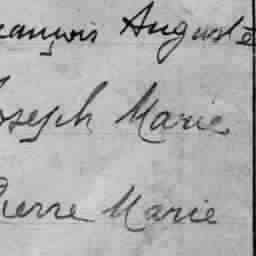 rançois Auguste
Joseph Marie
Pierre Marie